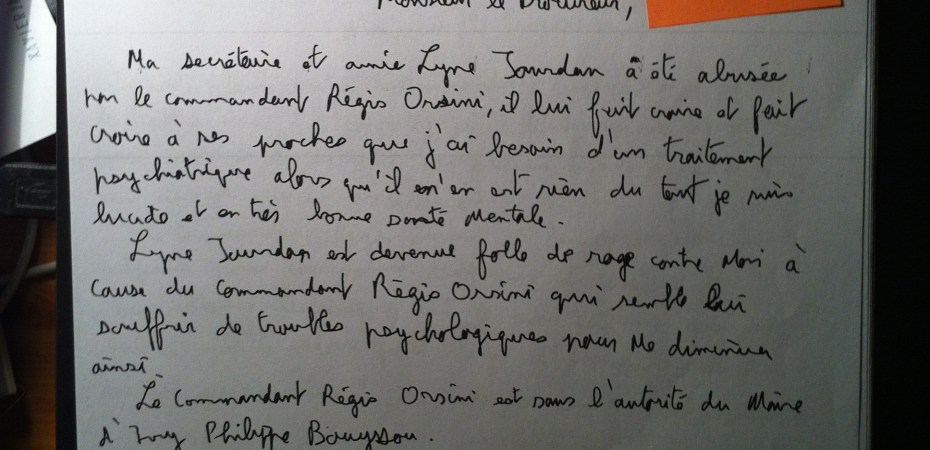 Monsieur le Procureur,
Ma secrétaire et amie Lyne Jourdan à été abusée
par le commandant Régis Orsini, il lui fait croire et fait
croire à ses proches que j'ai besoin d'un traitement
psychiatrique alors qu'il en'en est rien du tout je suis
lucide et en très bonne santé mentale.
Lyne Jourdan est devenue folle de rage contre Moi à
cause du Commandant Régis Orsini qui semble lui
souffrir de troubles psychologiques pour Me diminuer
ainsi.
Le Commandant Régis Orsini est sous l'autorité du Maire
d' Philippe Bouyssou.